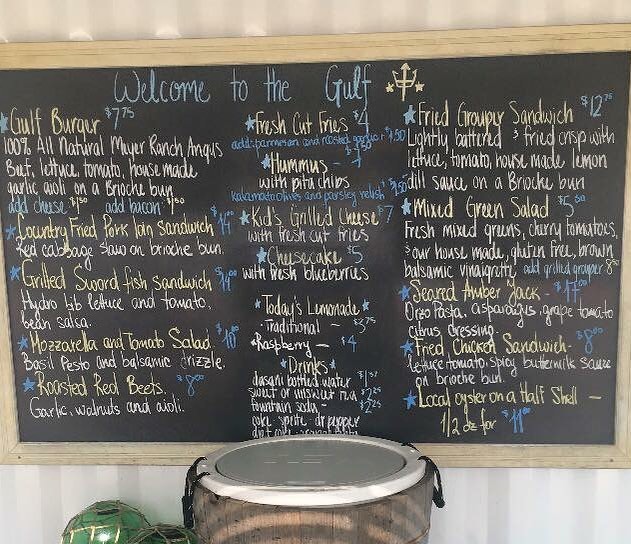 Welcome to the Gulf
Gulf Burger $7.75
100% All Natural Meyer Ranch Angus
Beef, lettuce, tomato, house made
garlic aioli on a Brioche bun
add cheese $1.50 add bacon $1.50
Country Fried Pork loin Sandwich
Red cabbage slaw on brioche bun.
Grilled Sword fish Sandwich
Hydro bib lettuce and tomato,
bean salsa.
Mozzarella and Tomato Salad
Basil Pesto and balsamic drizzle.
Roasted Red Beets. $8.00
Garlic, walnuts and aioli.
Fresh Cut Fries $4
add: parmesan and roasted garlic $1.50
Hummus -
with pita chips
kalamata olives and parsley relish
Kid's Grilled Cheese $7
with fresh cut fries
Cheesecake $5
with fresh blueberries
Today's Lemonade
Traditional -
Raspberry - $4
Drinks
dasani bottled water
sweet or unsweet tea
fountain soda - $2.25
coke sprite dr pepper
Fried Grouper Sandwich $12.75
Lightly battered & fried crisp with
lettuce, tomato, house made lemon
dill sauce on a Brioche bun
Mixed Green Salad
Fresh mixed greens, cherry tomatoes,
& our house made, gluten free, brown
balsamic vinaigrette add grilled grouper
Seared Amber Jack -
Orzo Pasta, asparagus, grape tomato
citrus dressing.
Fried Chicken Sandwich - $8.00
lettuce tomato, spicy buttermilk sauce
on brioche bun.
Local oyster on a Half Shell -
1/2 dz for $11.00